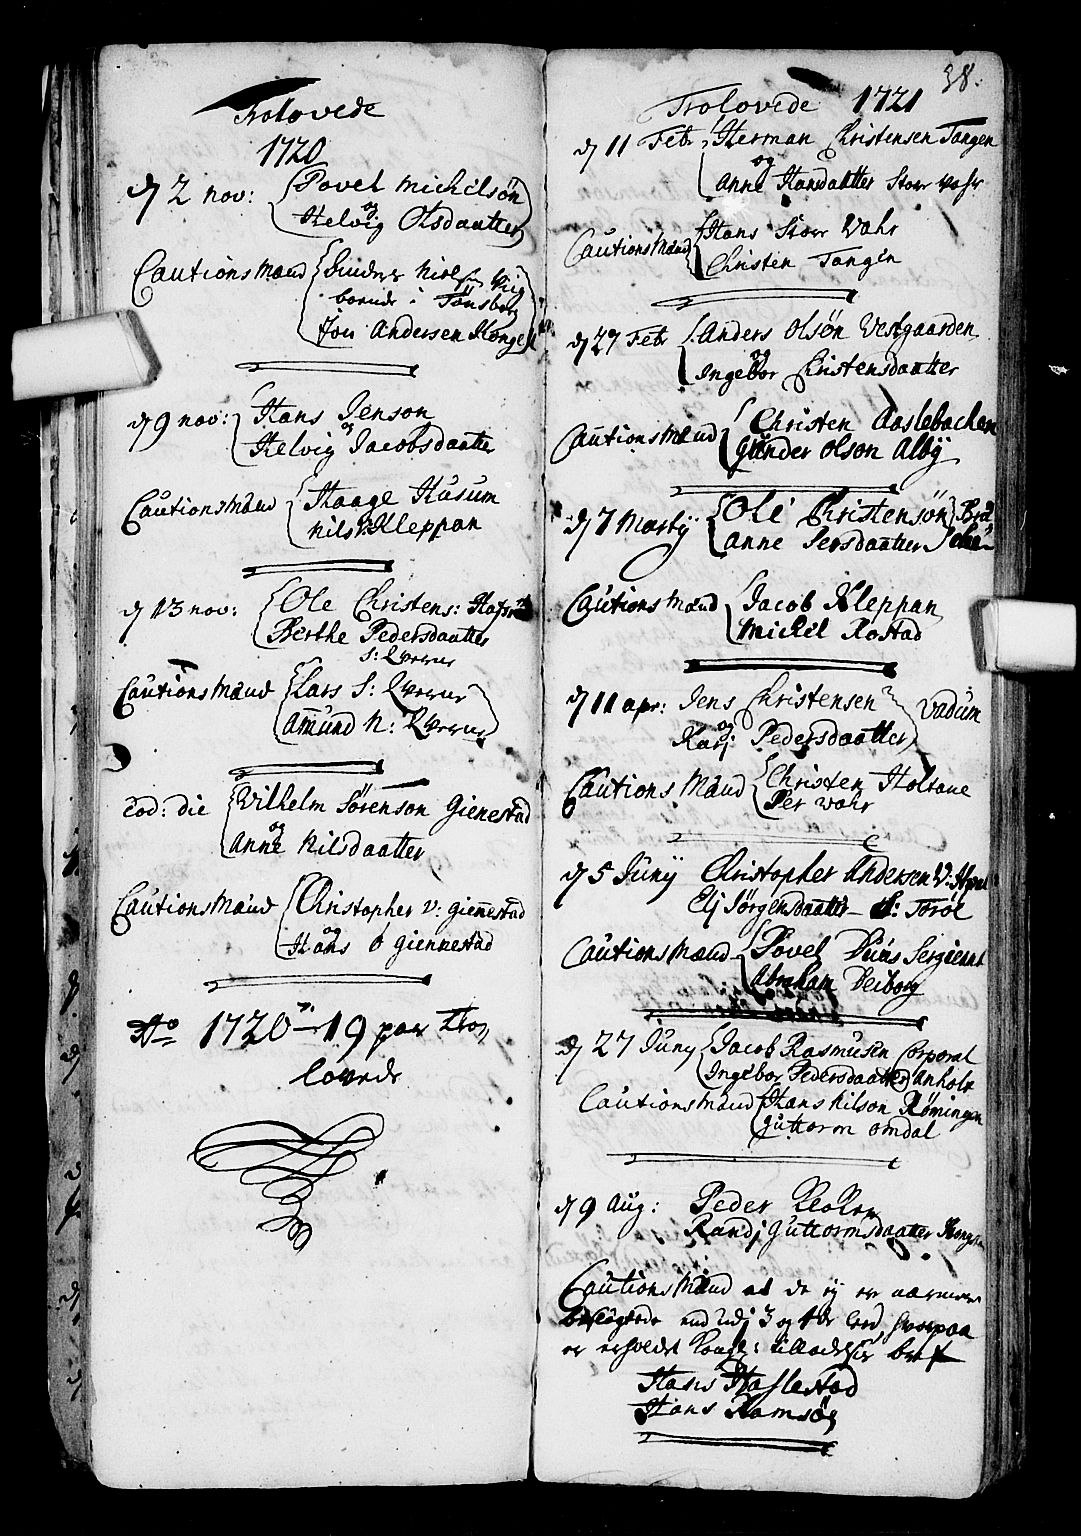 Trolovede
1720
d 2 nov: Povel Michelsøn
og
Helvig Olsdaatter
Cautions Mænd
boende i Tønsberg
Jon Andersen
d 9 nov: Hans Jenson
og
Helvig Jacobsdaatter
Cautions Mænd Haage Husum
Nils Kleppan
d 13 nov: Ole Christens:
Berthe Pedersdaatter
Cautions Mænd Lars S:
Amund N:
Eod: die Vilhelm Sørenson Giennestad
og
Anne Nilsdaatter
Cautions Mænd Christopher v: giennestad
og
Hans ø giennestad
Ao 1720 - 19 par Tro
lovede
38.
Trolovede 1721
d 11 Febr Herman Christensen Tangen
og
Anne Hansdaatter Storr Vahr
Cautions Mænd Hans Storr Vahr
Christen Tangen
d 27 Febr Anders Olsøn Vestgaarden
og
Ingebor Christensdaatter
Cautions Mænd Christen Aaslebachen
Gunder Olson Alby
d 7 Martij Ole Christensøn
Anne Iversdaatter
Cautions Mænd Jacob Kleppan
Michel Rostad
d 11 apr: Jens Christensen Vadum
og
Karj Pedersdaatter
Cautions Mænd Christen Holtane
Per Vahr
d 5 Junij Christopher Andersen
Elj Jørgensdaatter
Cautions Mænd Povel Duus Sergient
Abraham Deiborg
d 27 Juny Jacob Rasmusen Corporal
Ingebor Pedersdaatter Anholt
Cautions Mænd Hans Nilson Rømingen
Guttorm Omdal
d 9 Aug: Peder
Randj Guttormsdaatter
Cautions Mænd at de ej er nærmere
end udj 3 og 4de Led, hvorpaa
er erholdet Kongl: tilladelsis bref
Hans Haslestad
Hans Ramsøe